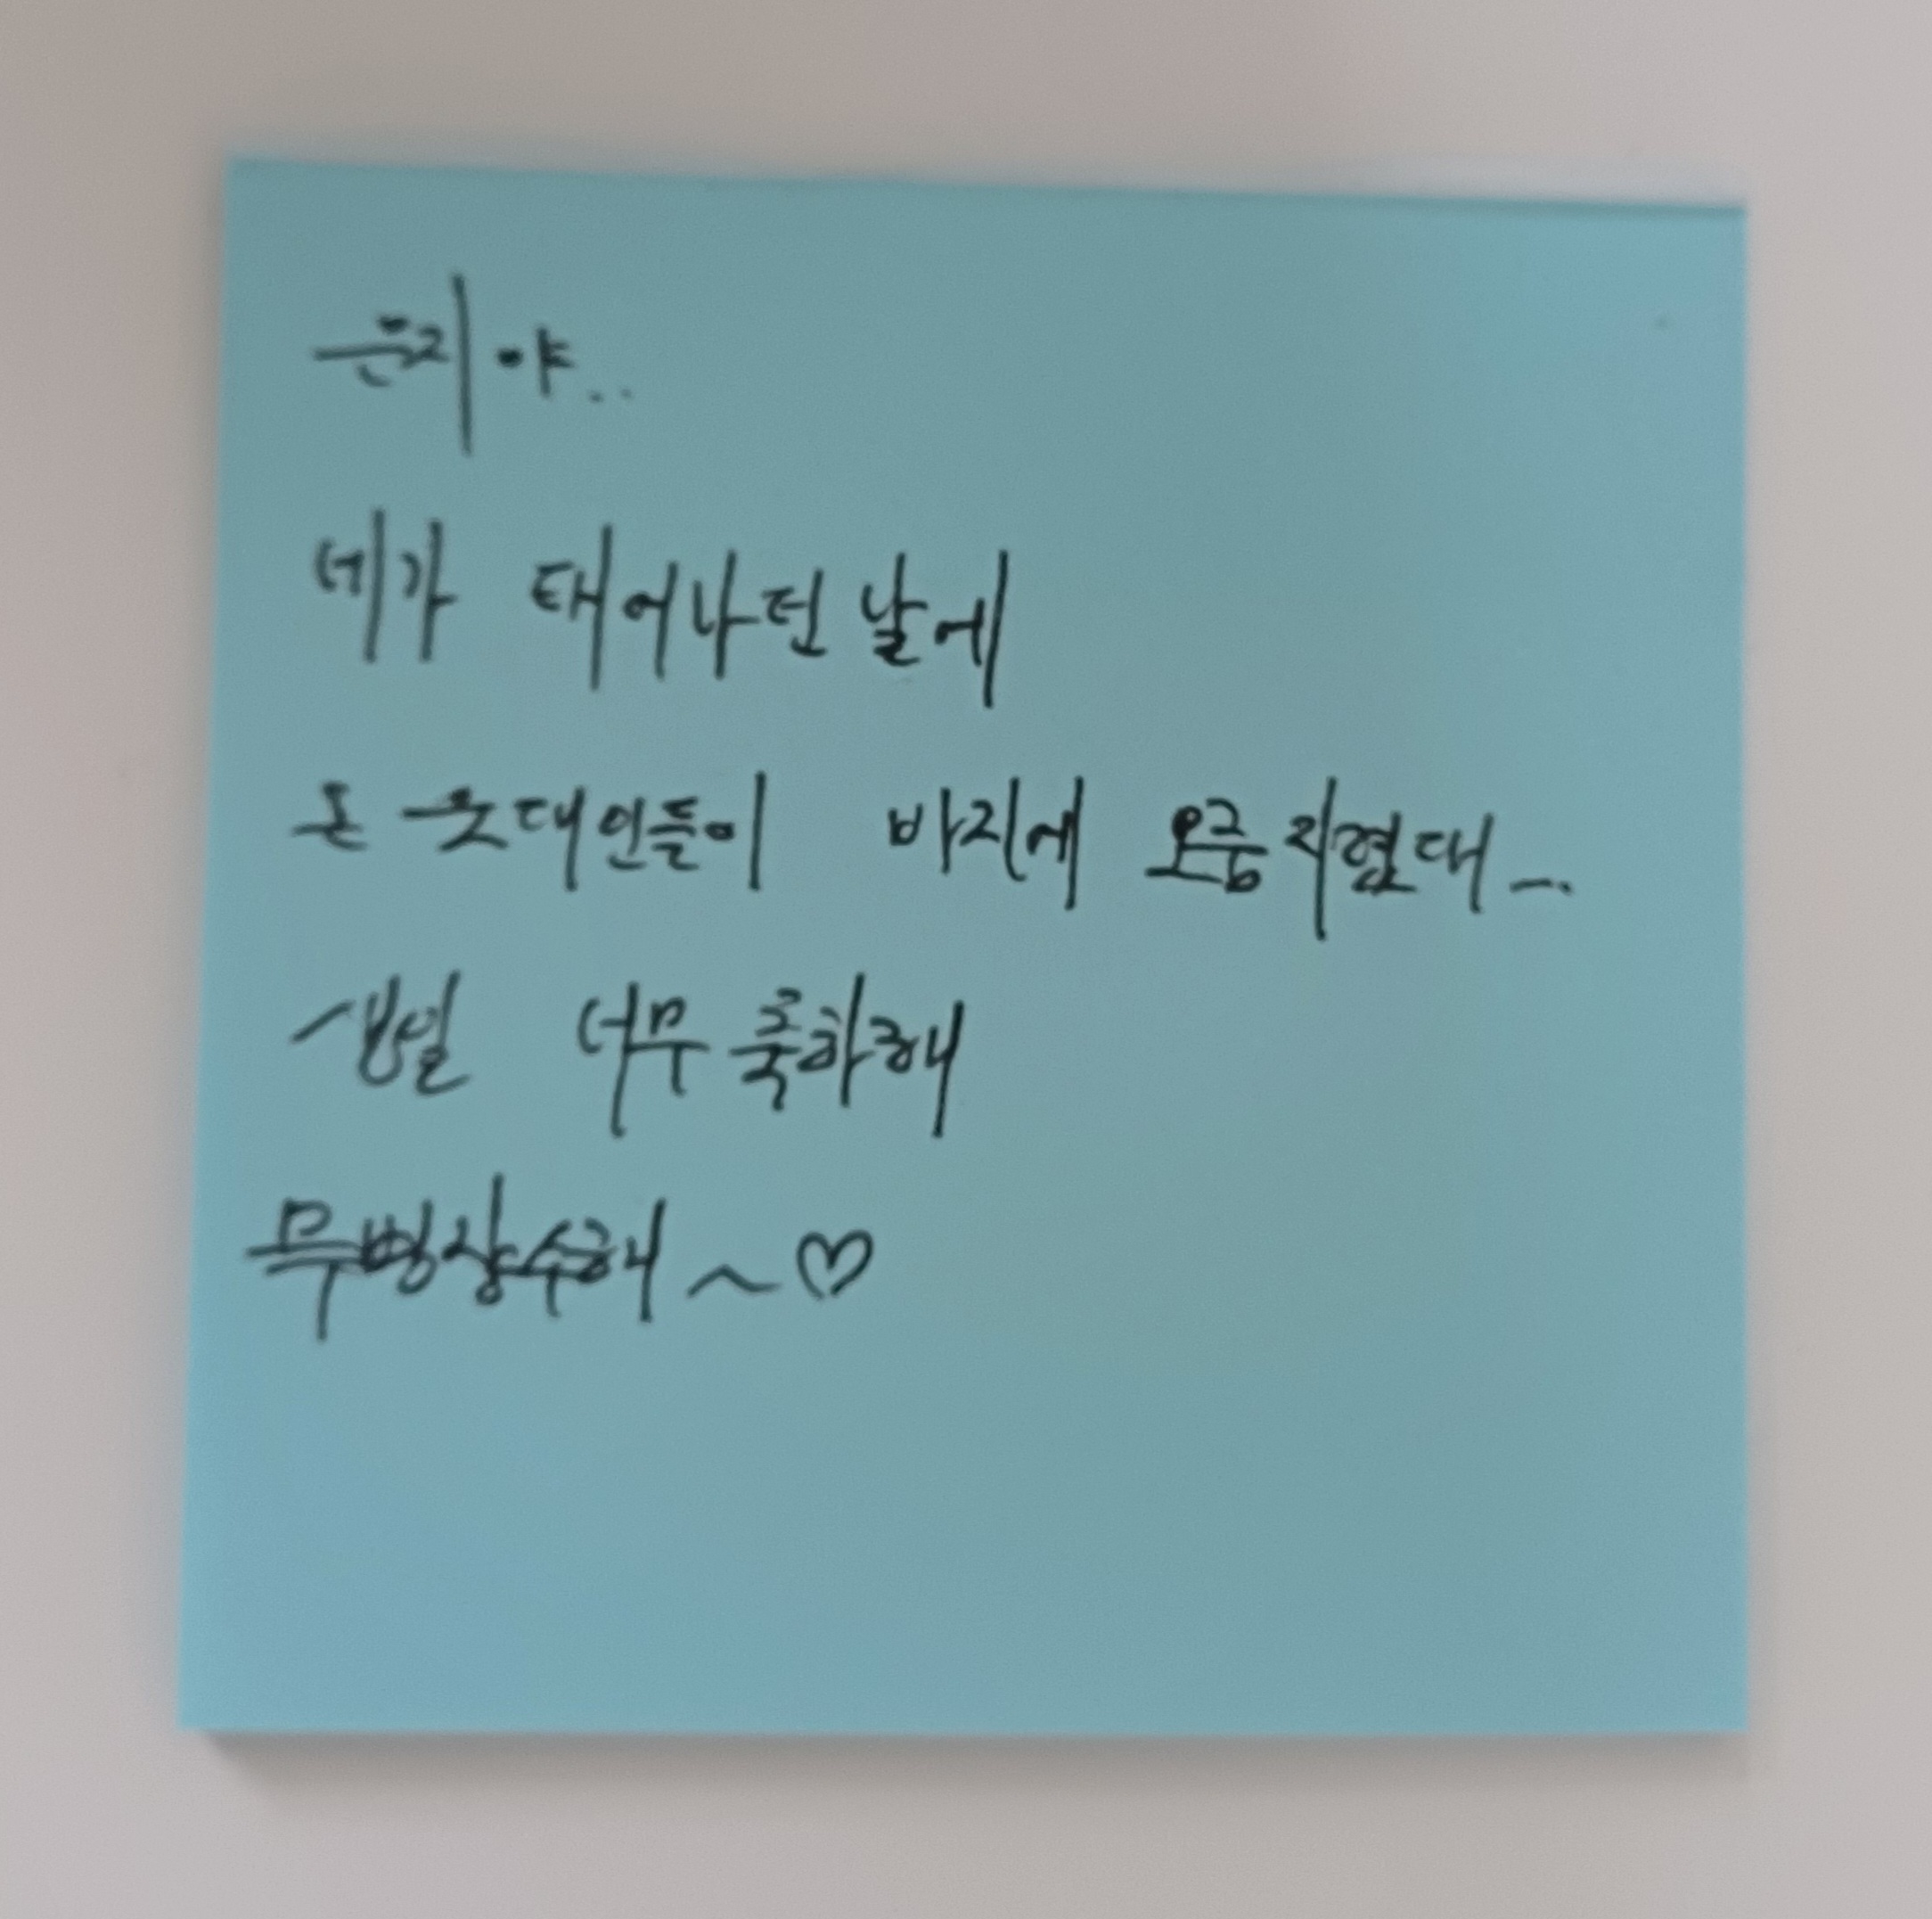 은지야..
네가 태어나던 날에
온 웃대인들이 바지에 오줌지렸대...
생일 너무 축하해
무병장수해~♡